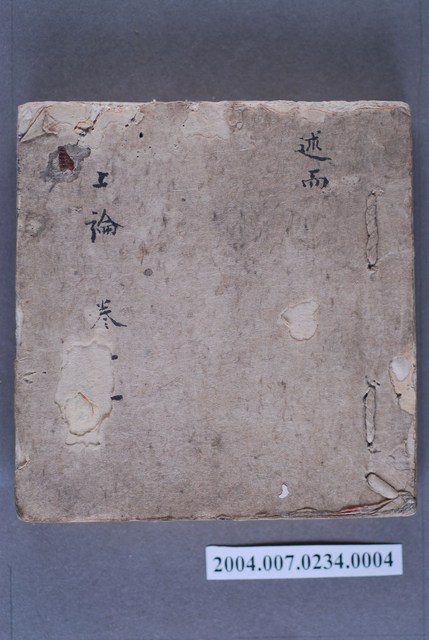 述而
上論 卷
2004.007.0234.0004